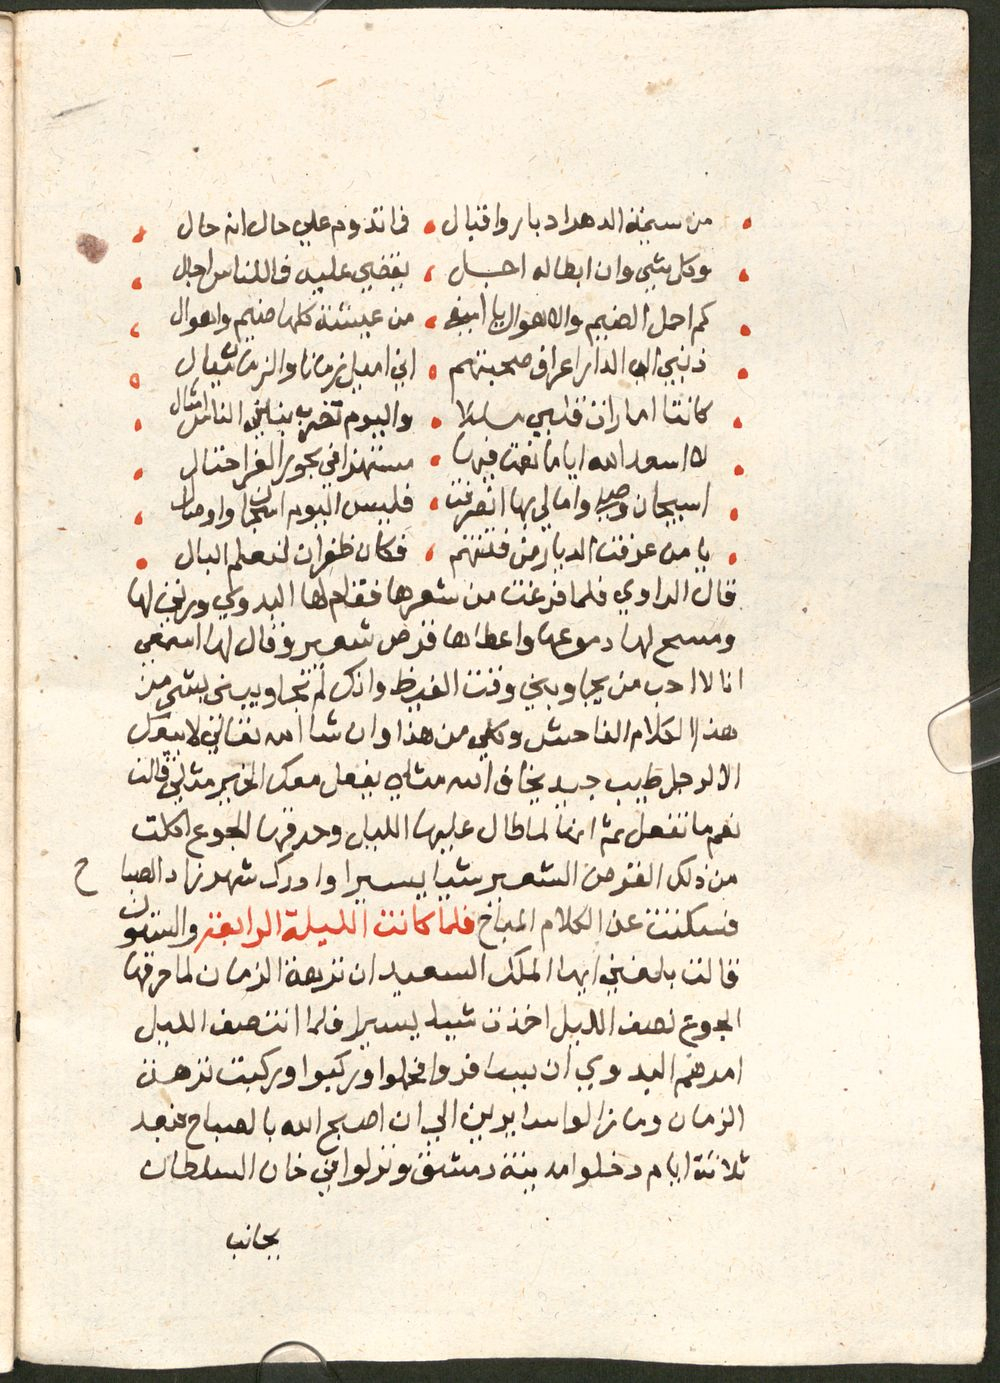 من سيمة الدهر ادبار واقبال • فما تدوم علي حال انه حال
وكل شي وان ابطاله اجل • يقضي عليه فاللناس اجال
كم احمل الضيم والاهوال يا اسفي • من عيشة كلها ضيم واهوال
والزمان ميال
كانت امارات قلبي • واليوم تخرب الناس امثال
لا اسعد الله اياما فيها •
وصبح وامالي بها انصرفت • فليس اليوم واوصال
يا من عرفت الديار من • فكان لنعلم البال
قال الراوي فلما فرغت من شعرها فقام لها البدوي ورق لها
ومسح لها دموعها واعطاها قرص شعير وقال لها اسمعي
انا لا احب من يجاوبني وقت الغيظ وانك لم تجاوبيني بشي من
هذا الكلام الفاحش وكلي من هذا وان شا الله تعالي لا ابيعك
الا لرجل طيب جيد يخاف الله مثلي يفعل معك الخير مثلي قالت
نعم ما تفعل ثم انها لما طال عليها الليل وحرقها الجوع اكلت
من ذلك القرص الشعير شيا يسيرا وادرك شهرزاد الصبا ح
فسكتت عن الكلام المباح فلما كانت الليلة الرابعة والستون
قالت بلغني ايها الملك السعيد ان نزهة الزمان لما حرقها
الجوع نصف الليل اخذت شيا يسيرا فلما انتصف الليل
امرهم البدوي ان يسافروا فحملوا وركبوا وركبت نزهة
الزمان وما زالوا سايرين الي ان اصبح الله بالصباح فبعد
ثلاثة ايام دخلوا مدينة دمشق ونزلوا في خان السلطان
بجانب